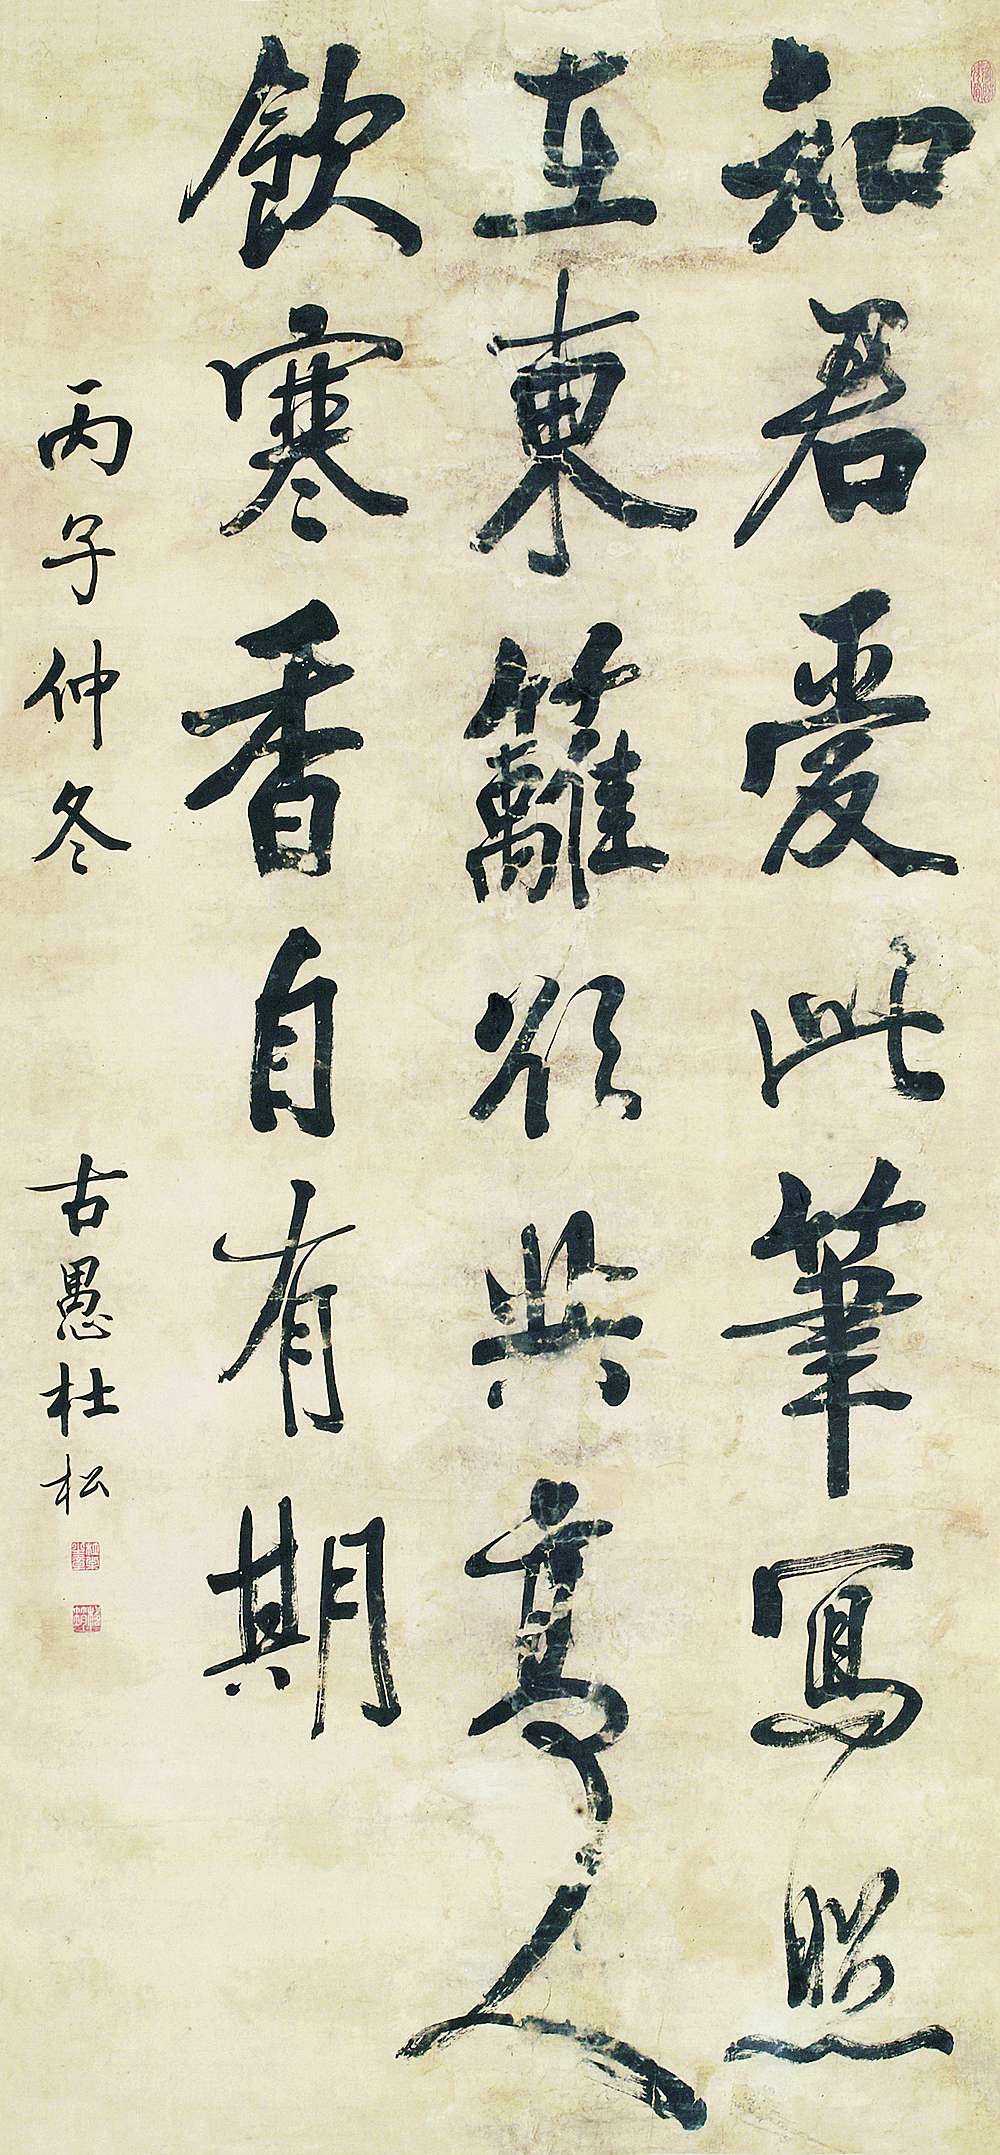 知君愛此筆寫照
在東籬欲共高人
飲寒香自有期
丙子仲冬 古愚杜松